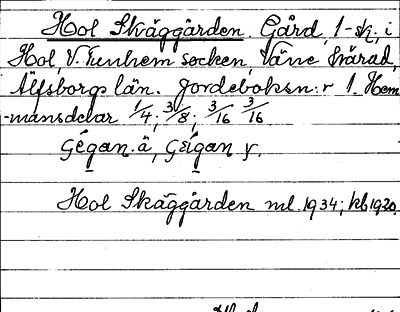 Hol Skäggården. Gård, 1-sk, i
Hol, V. Tunhem socken, Väne härad,
Älfsborgs län. Jordeboksn:r 1. Hem
-mansdelar 1/4; 3/8; 3/16 3/16
Gégan ä, Géigan y.
Hol Skäggården ml. 1934; kb 1920.